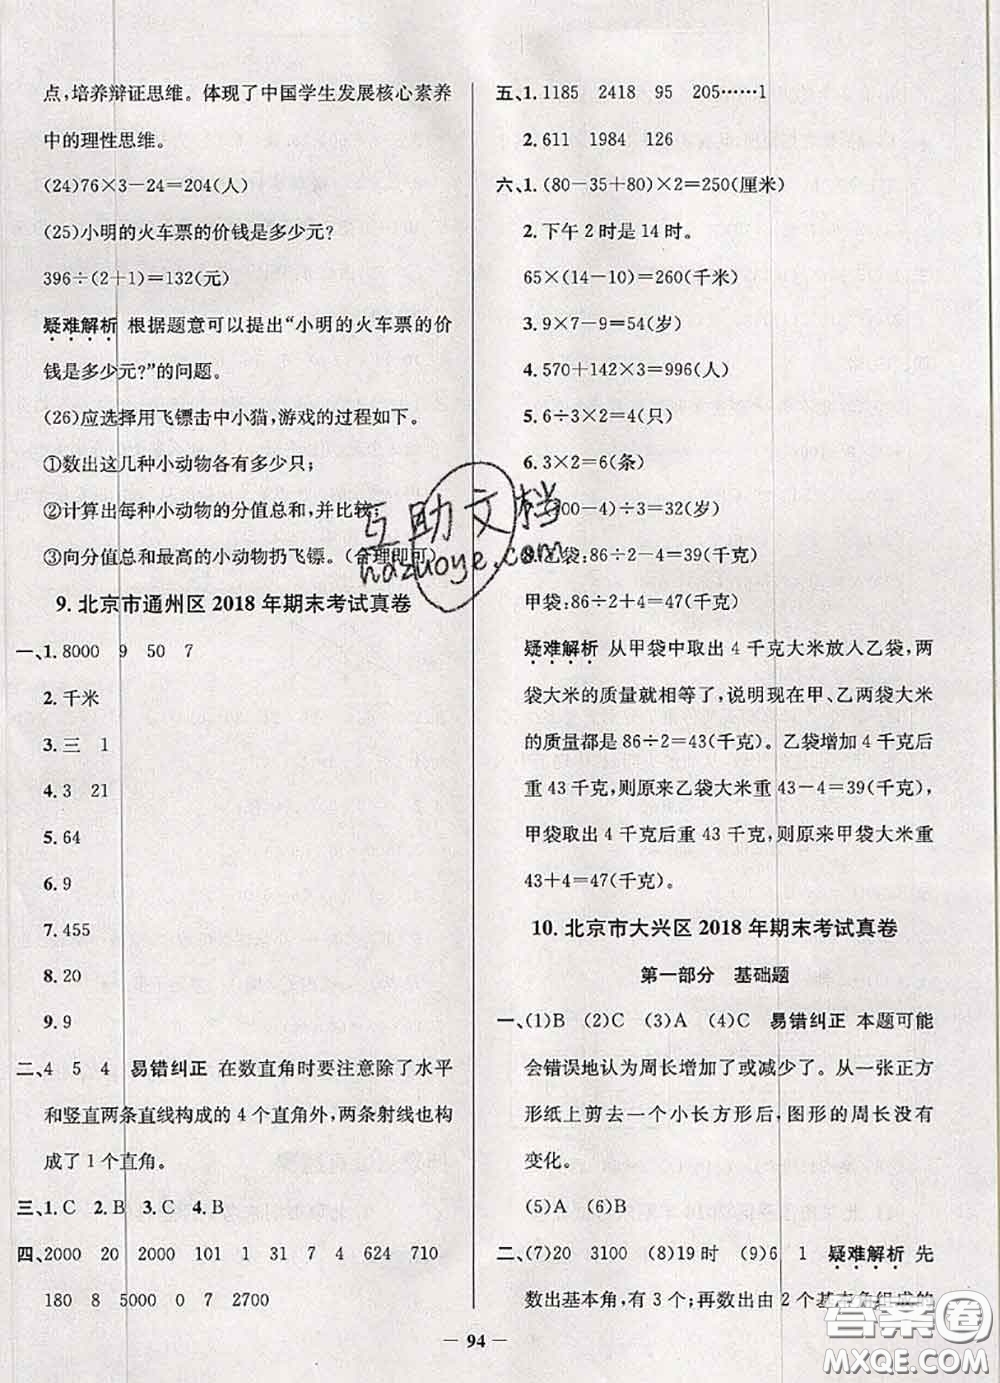 点,培养辩证思维。体现了中国学生发展核心素养
中的理性思维。
(24)76×3-24=204(人)
(25)小明的火车票的价钱是多少元?
396÷(2+1)=132(元)
疑难解析 根据题意可以提出“小明的火车票的价
钱是多少元?”的问题。
(26)应选择用飞镖击中小猫,游戏的过程如下。
①数出这几种小动物各有多少只;
②计算出每种小动物的分值总和,并比较;
③向分值总和最高的小动物扔飞镖。(合理即可)
9.北京市通州区2018年期末考试真卷
一、1.8000 9 50 7
2.千米
3.三 1
4.3 21
5.64
6.9
7.455
8.20
9.9
二、4 5 4 易错纠正 在数直角时要注意除了水平
和竖直两条直线构成的4个直角外,两条射线也构
成了1个直角。
三、1.C 2.B 3.C 4.B
四、2000 20 2000 101 1 31 7 4 624 710
180 8 5000 0 7 2700
五、1.1185 2418 95 205……1
2.611 1984 126
六、1.(80-35+80)×2=250(厘米)
2.下午2时是14时。
65×(14-10)=260(千米)
3.9×7-9=54(岁)
4.570+142×3=996(人)
5.6÷3×2=4(只)
6.3×2=6(条)
00-4)÷3=32(岁)
8.乙袋:86÷2-4=39(千克)
甲袋:86÷2+4=47(千克)
疑难解析 从甲袋中取出4千克大米放人乙袋,两
袋大米的质量就相等了,说明现在甲、乙两袋大米
的质量都是86÷2=43(千克)。乙袋增加4千克后
重43千克,则原来乙袋大米重43-4=39(千克),
甲袋取出4千克后重43千克,则原来甲袋大米重
43+4=47(千克)。
10.北京市大兴区2018年期末考试真卷
第一部分 基础题
一、(1)B (2)C (3)A (4)C 易错纠正 本题可能
会错误地认为周长增加了或减少了。从一张正方
形纸上剪去一个小长方形后,图形的周长没有
变化。
(5)A (6)B
二、(7)20 3100 (8)19时 (9)6 1 疑难解析 先
数出基本角,有3个;再数出由2个基本角组成的
— 94 —
互助文档
hazuoye.com
答案圈
MXQE.COM